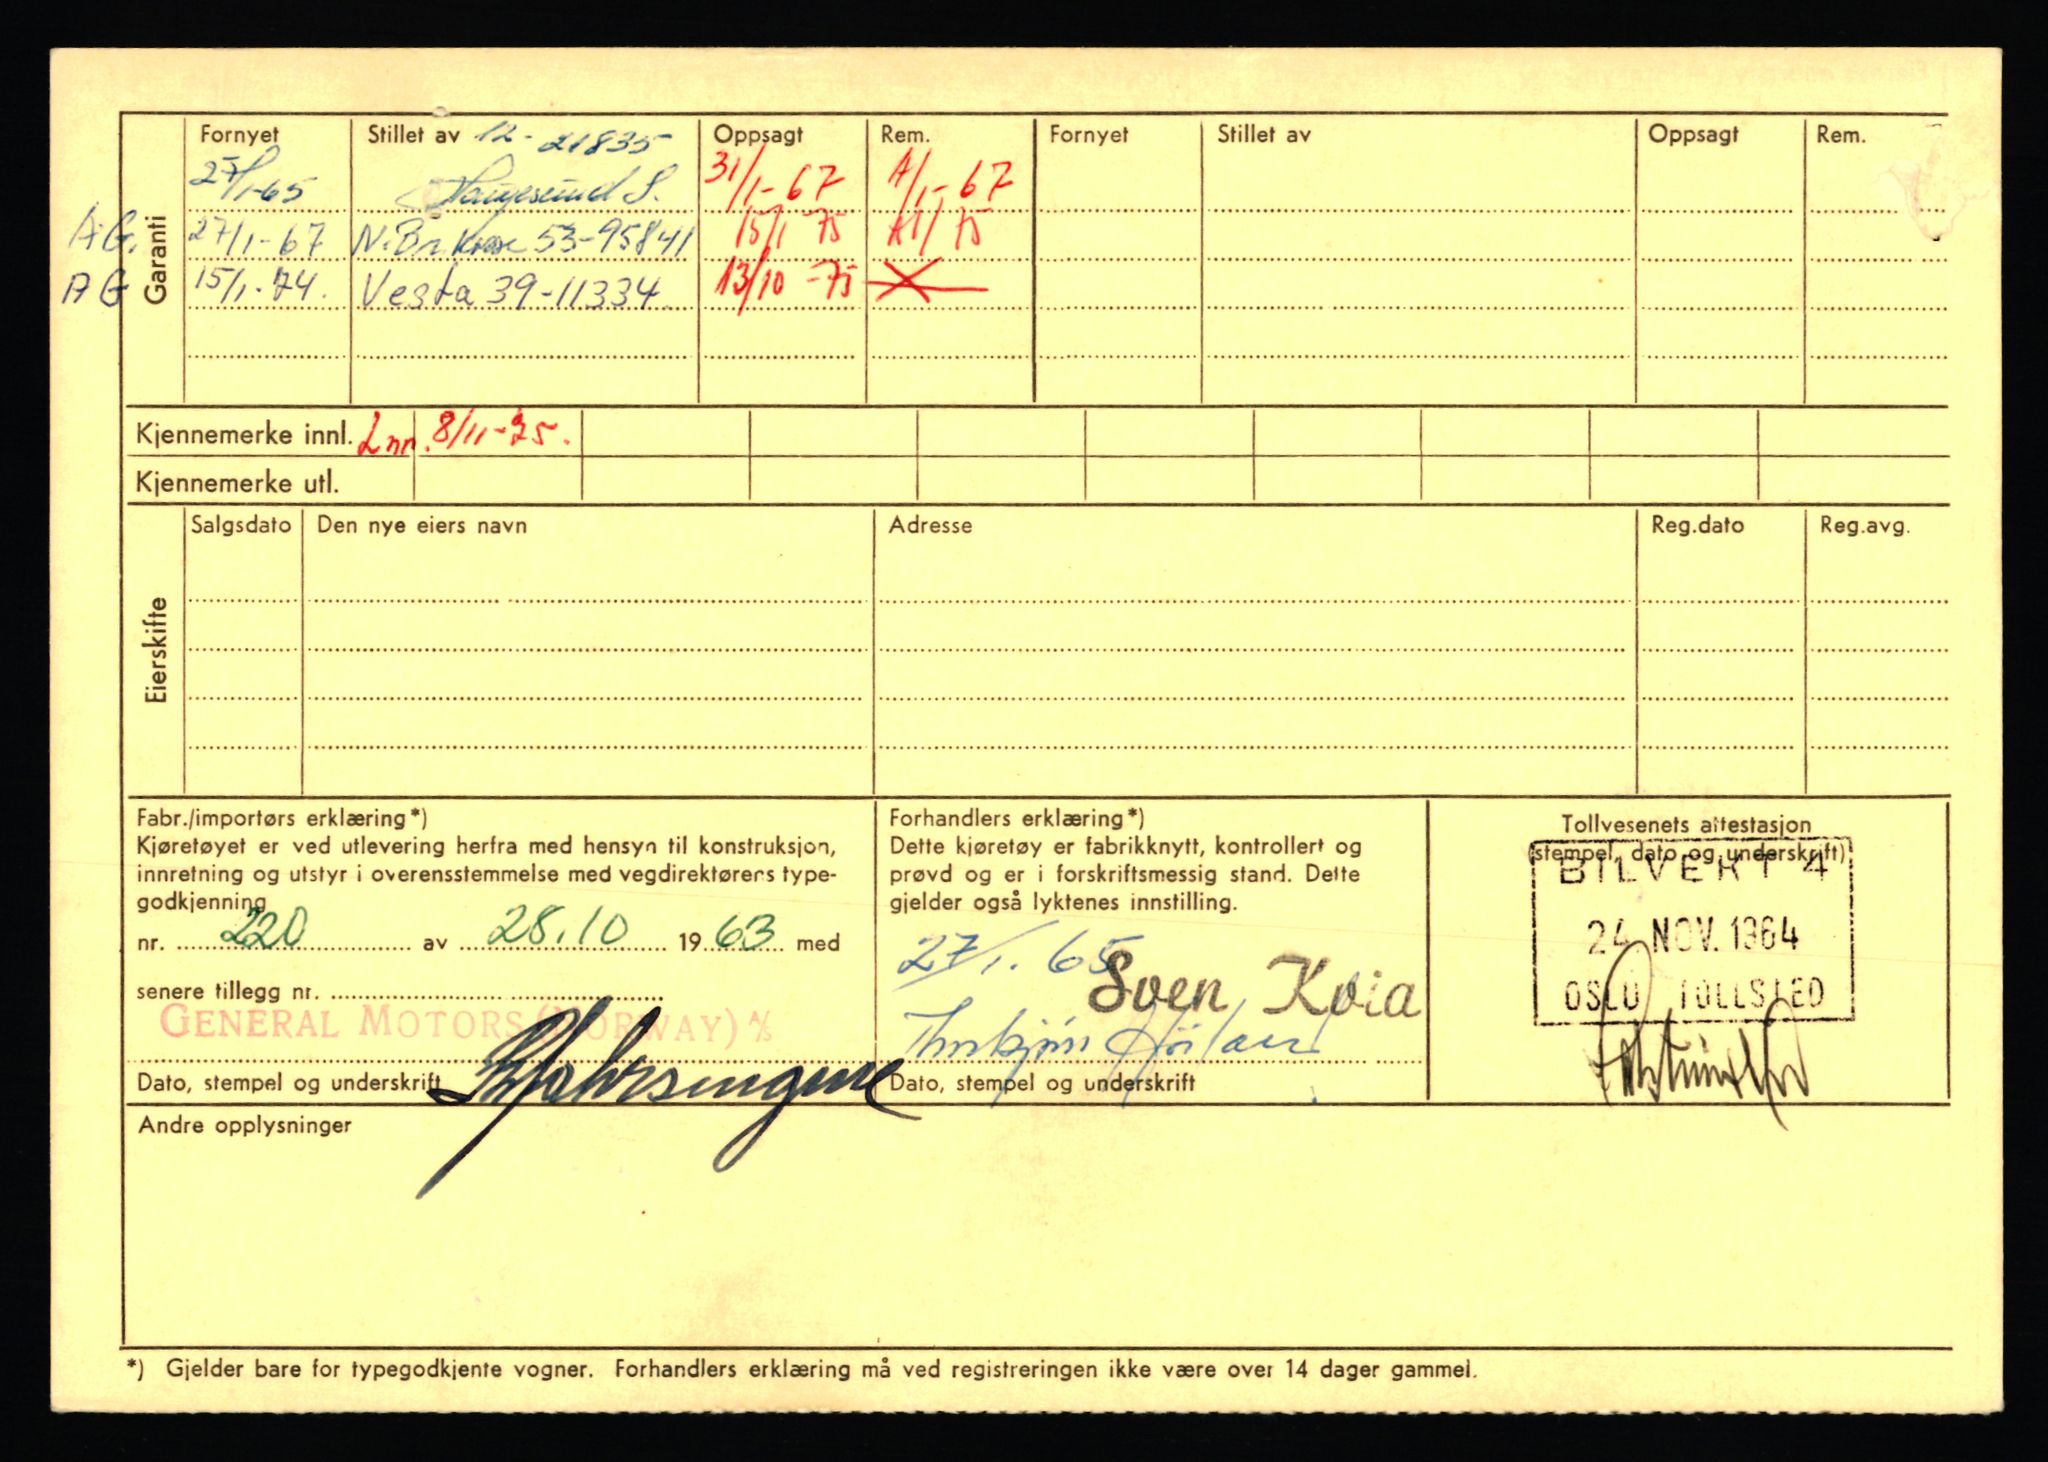 Garanti
Fornyet Stillet av 12-21835 Oppsagt Rem. Fornyet Stillet av Oppsagt Rem.
27/1-65 Haugesund S. 31/1-67 A/1-67
AG. 27/1-67 N.Br.kasse 53-95841 15/1 75 A1/75
AG 15/1-74. Vesta 39-11334 13/10-75
Kjennemerke innl. Inn. 8/11-75.
Kjennemerke utl.
Eierskifte
Salgsdato Den nye eiers navn Adresse Reg.dato Reg.avg.
Fabr./importørs erklæring*)
Kjøretøyet er ved utlevering herfra med hensyn til konstruksjon,
innretning og utstyr i overensstemmelse med vegdirektørens type-
godkjenning
nr. 220 av 28.10 1963 med
senere tillegg nr.
GENERAL MOTORS (NORWAY) A/S
Dato, stempel og underskrift
Forhandlers erklæring*)
Dette kjøretøy er fabrikknytt, kontrollert og
prøvd og er i forskriftsmessig stand. Dette
gjelder også lyktenes innstilling.
27/1. 65
Sven Kvia
Dato, stempel og underskrift
Tollvesenets attestasjon
(stempel, dato og underskrift)
BILVEKT 4
24 NOV. 1964
OSLO TOLLSTED
Andre opplysninger
*) Gjelder bare for typegodkjente vogner. Forhandlers erklæring må ved registreringen ikke være over 14 dager gammel.